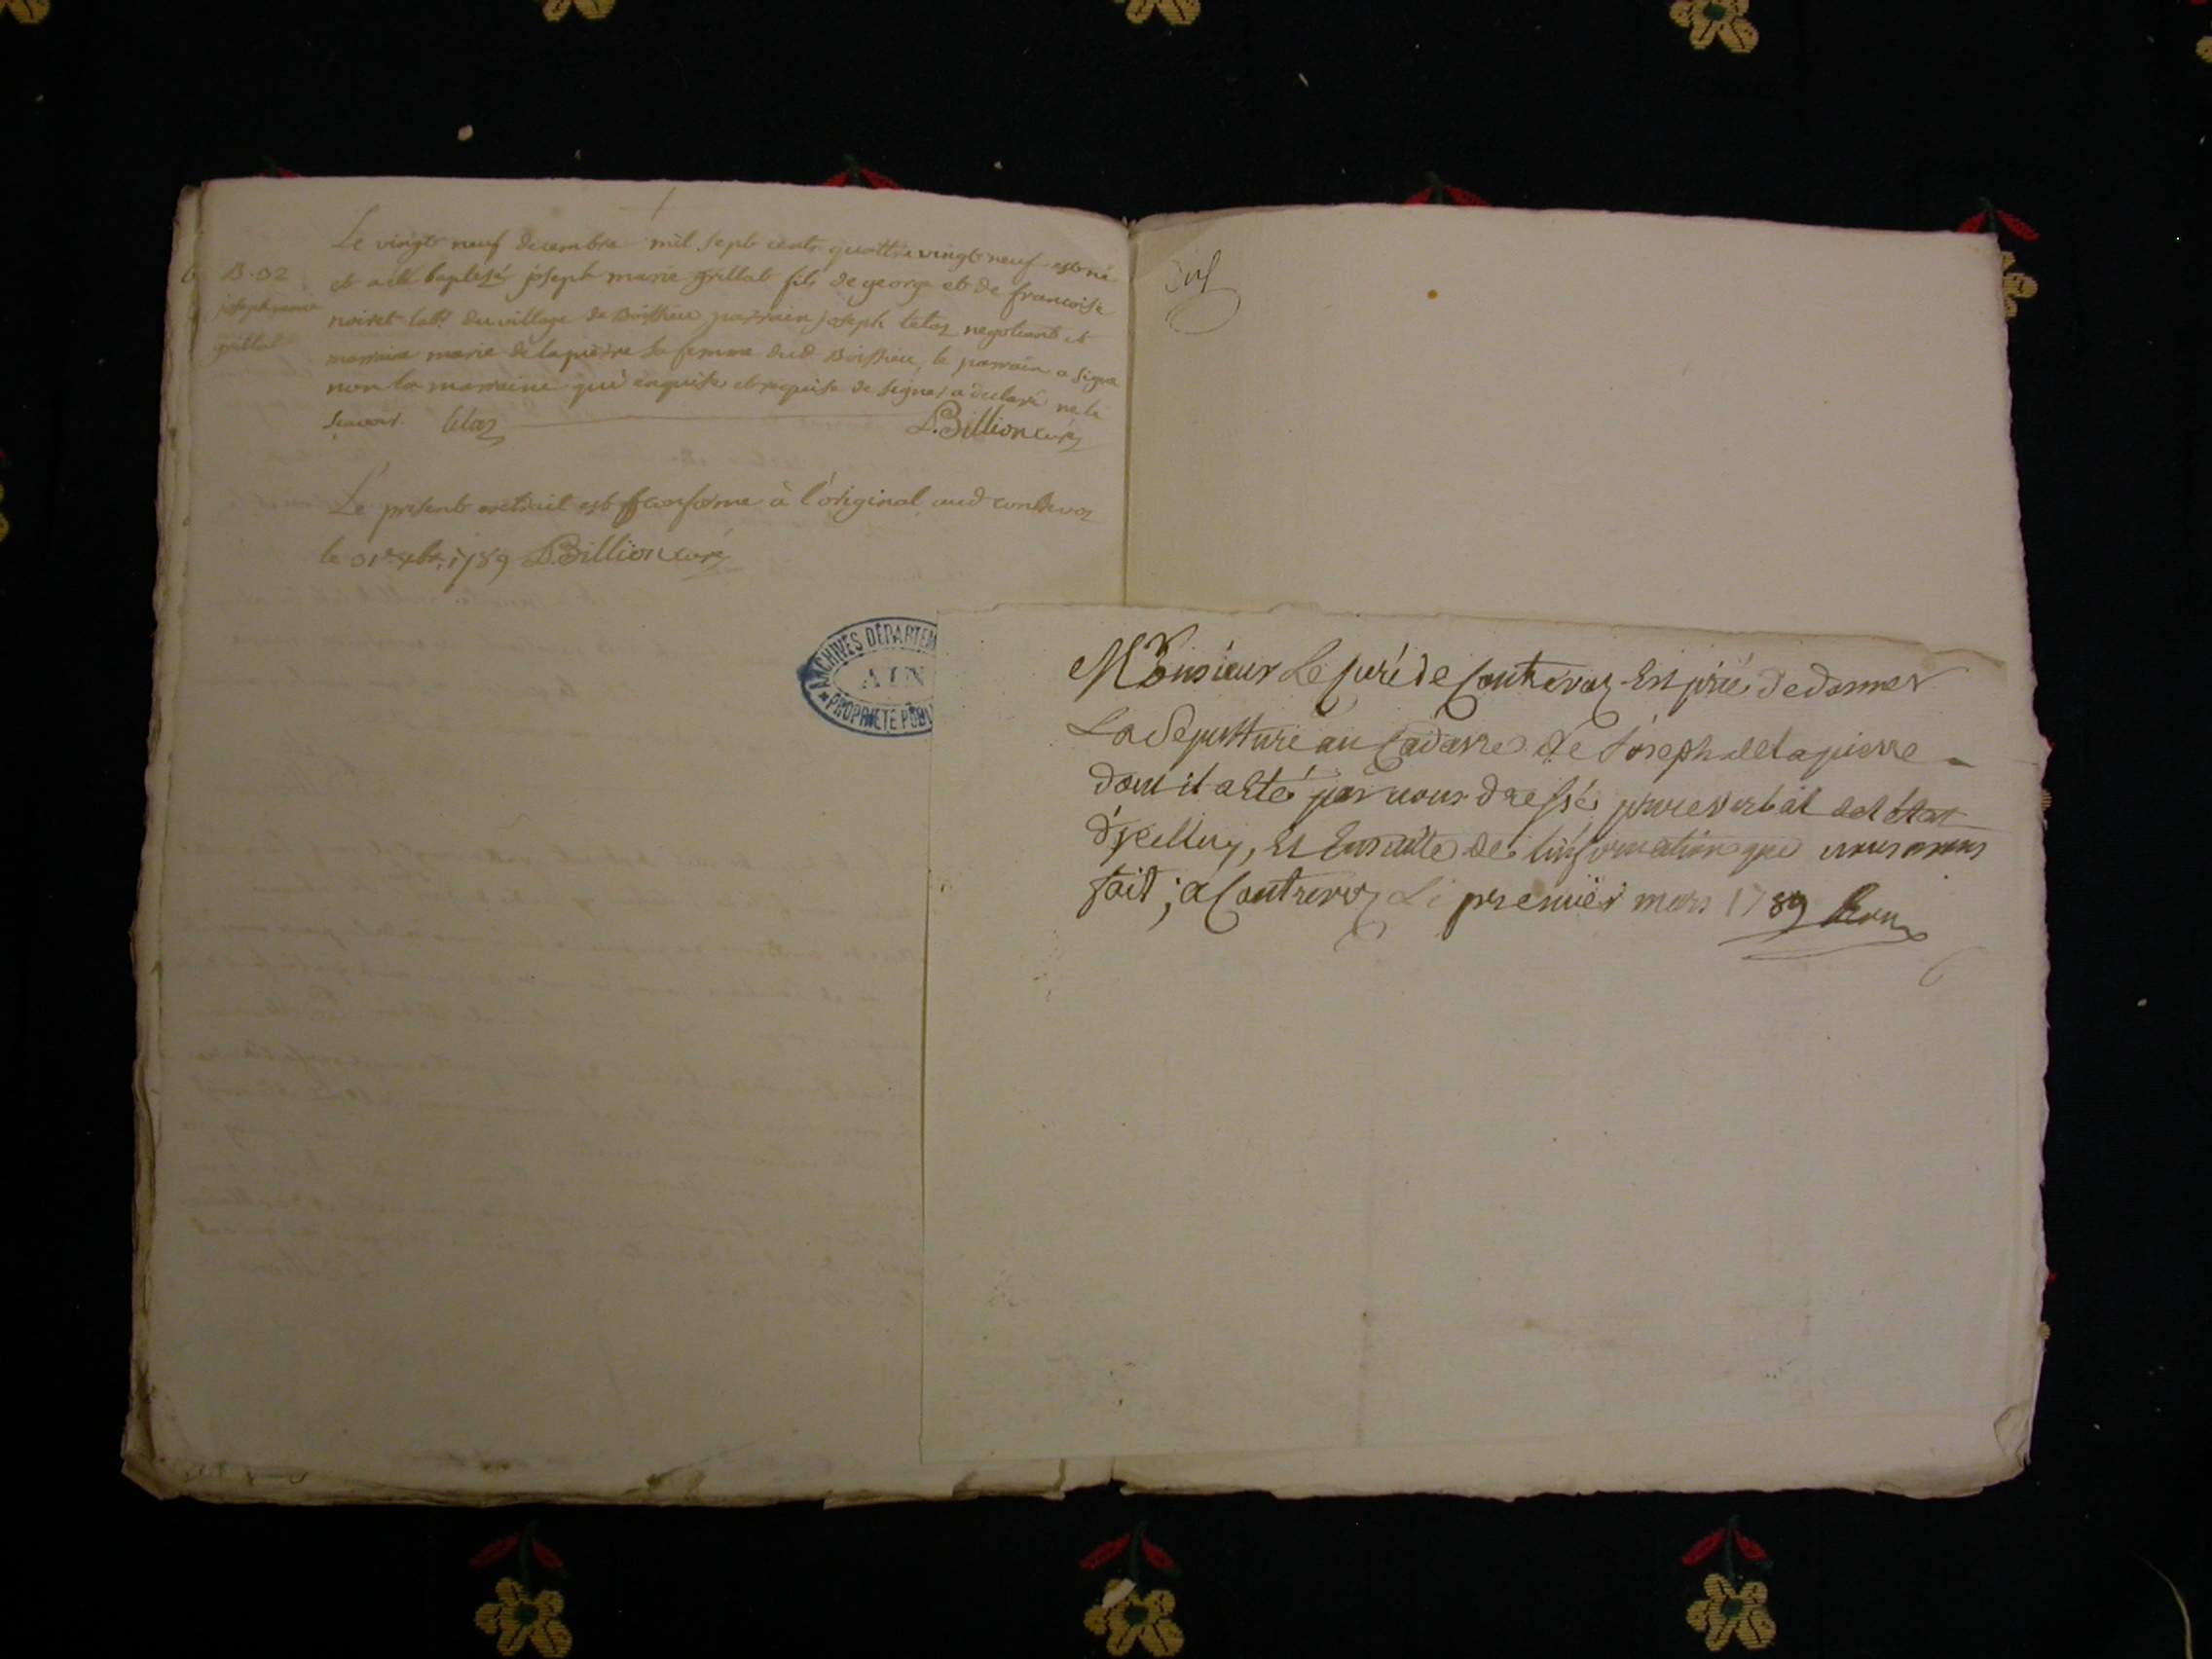 Le vingt neuf decembre mil sept cents quattre vingt neuf est né
B. 32
et a été baptisé joseph marie grillat fils de george et de francoise
joseph marie
noiret labr du village de Boissieu parrain joseph telaz negotiant et
grillat
marraine marie delapierre sa femme dud Boissieu, le parrain a signé
non la marraine qui enquise et requise de signer a declaré ne le
sçavoir. telaz B. Billion curé
Le present extrait est conforme à l'original aud contrevoz
le 31e xbre 1789 B. Billion curé
ARCHIVES DÉPARTEM
AIN
PROPRIÉTÉ PUBLI
Monsieur Le Curé de Contrevoz Est prié de donner
La Sepulture au Cadavre de Joseph delapierre
dont il a été par nous dressé procesverbal de l'état
d'ycelluy, Et Ensuitte de l'information que nous avons
fait; a Contrevoz Le premier mars 1789